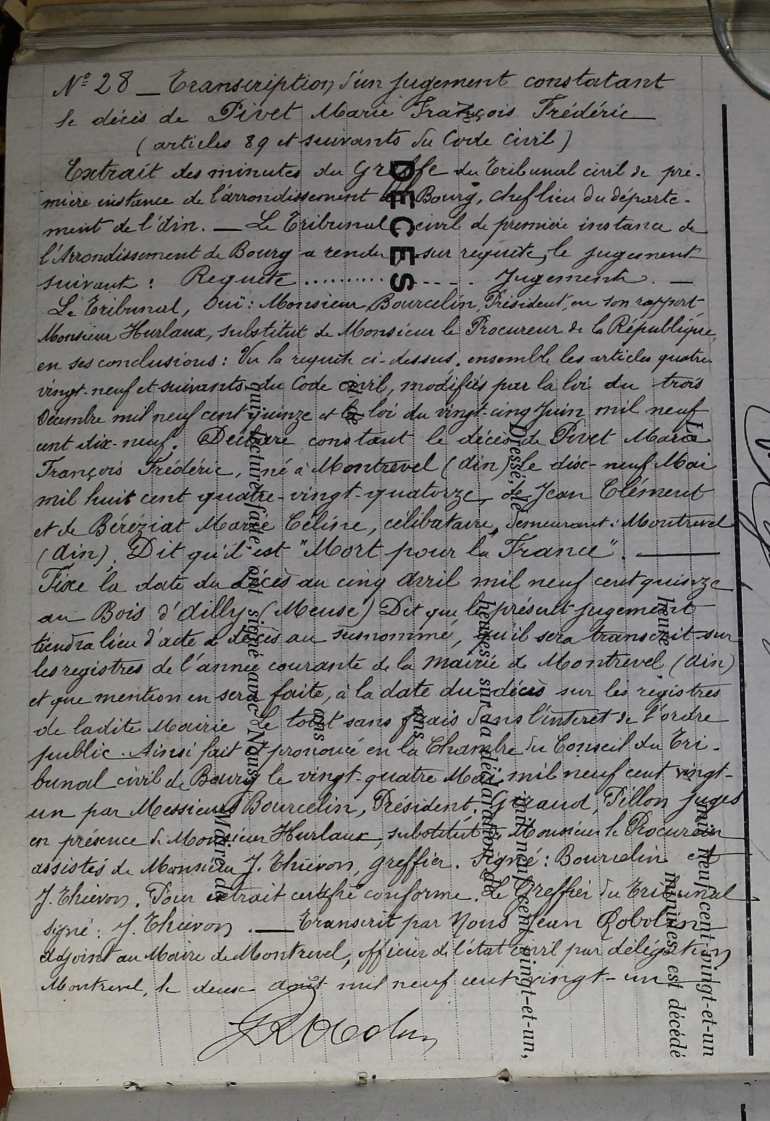 N° 28 — Transcription d'un jugement constatant
le décès de Pivet Marie François Frédéric
(articles 89 et suivants du Code civil)
Extrait des minutes du Greffe du Tribunal civil de pre-
mière instance de l'arrondissement de Bourg, chef lieu du départe-
ment de l'Ain. — Le Tribunal civil de première instance de
l'Arrondissement de Bourg a rendu sur requête, le jugement
suivant : Requête .................. Jugement. —
Le Tribunal, Ouï : Monsieur Bourcelin, Président, en son rapport
Monsieur Hurlaux, substitut de Monsieur le Procureur de la République,
en ses conclusions : Vu la requête ci-dessus, ensemble les articles quatre
vingt-neuf et suivants du Code civil, modifiés par la loi du trois
Décembre mil neuf cent quinze et la loi du vingt-cinq Juin mil neuf
cent dix-neuf ; Déclare constant le décès de Pivet Marie
François Frédéric, né à Montrevel (Ain) le dix-neuf Mai
mil huit cent quatre-vingt-quatorze, de Jean Clément
et de Béréziat Marie Céline, célibataire, demeurant à Montrevel
(Ain). Dit qu'il est "Mort pour la France". —
Fixe la date du décès au cinq Avril mil neuf cent quinze
au Bois d'Ailly (Meuse) Dit que le présent jugement
tiendra lieu d'acte de décès au susnommé, qu'il sera transcrit sur
les registres de l'année courante de la Mairie de Montrevel (Ain)
et que mention en sera faite, à la date du décès sur les registres
de ladite Mairie le tout sans frais dans l'intérêt de l'ordre
public. Ainsi fait et prononcé en la Chambre du Conseil du Tri-
bunal civil de Bourg le vingt-quatre Mai mil neuf cent vingt-
un par Messieurs Bourcelin, Président, Giraud, Pillon juges
en présence de Monsieur Hurlaux, substitut de Monsieur le Procureur
assistés de Monsieur J. Thiévon, greffier. Signé : Bourcelin et
J. Thiévon. Pour extrait certifié conforme. Le Greffier du Tribunal
signé : J. Thiévon. — Transcrit par Nous Jean Robolin
adjoint au Maire de Montrevel, officier de l'état civil par délégation
Montrevel, le douze Août mil neuf cent vingt-un
JRobolin
DÉCÈS
mil neuf cent vingt-et-un
minutes, est décédé
heure
Dressé, le
mil neuf cent vingt-et-un,
heures, sur la déclaration de
ans
ans
et de
qui, lecture faite, ont signé avec Nous,
Maire de